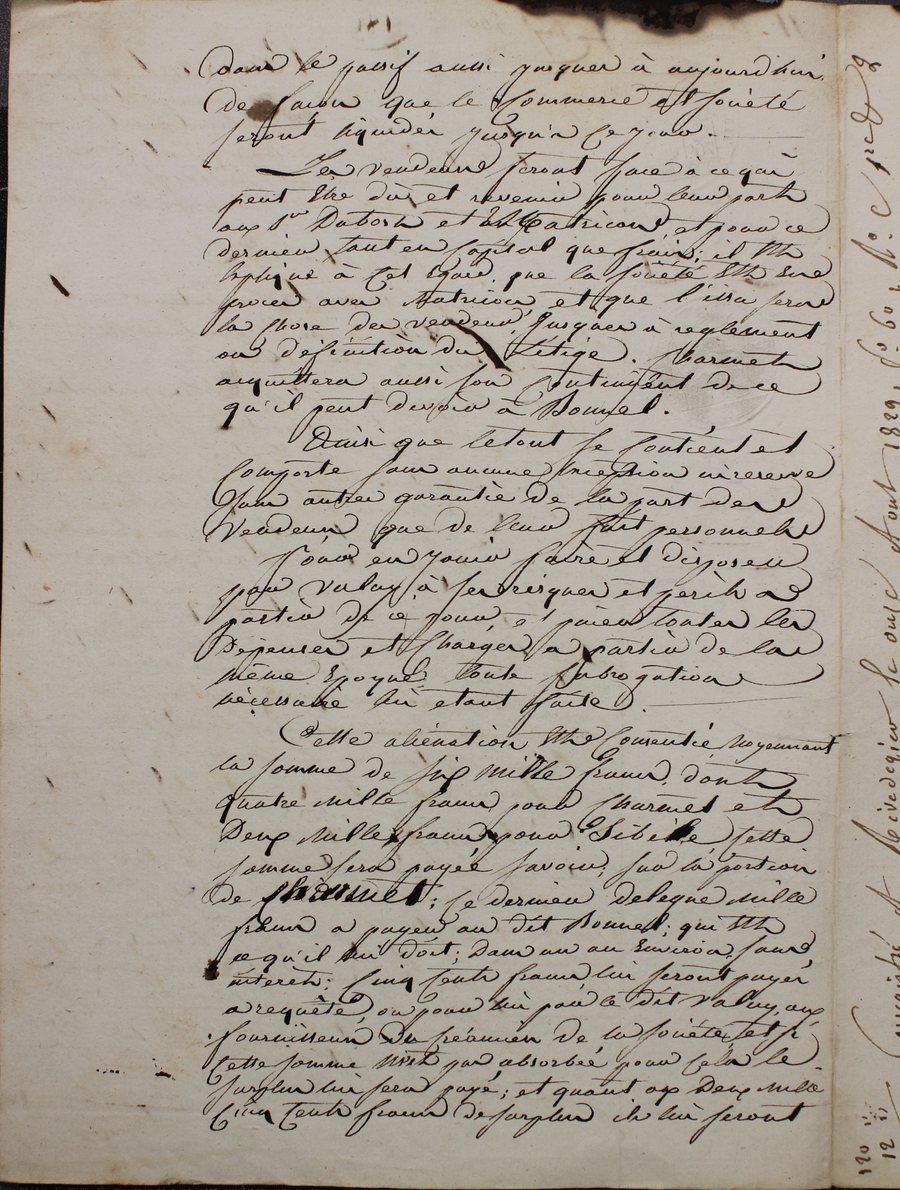 dans le passif aussi jusques à aujourd'hui,
de façon que le Commerce et société
seront liquidés jusqu'à ce jour.
Les vendeurs feront face à ce qui
peut Etre dû et revenir pour leur part
aux Srs Dubost et Matricon, et pour ce
dernier tant en Capital que frais; il Est
Expliqué à Cet Egard que la société Est En
procès avec Matricon, et que l'issu sera
la chose des vendeurs, jusques à reglement
ou définition du Litige. Charmet
acquittera aussi son Contingent de ce
qu'il peut devoir à Bonnel.
Ainsi que le tout se Contient et
Comporte sans aucune Exception ni reserve
Sans autre garantie de la part des
Vendeurs que de leur fait personnel
Pour en Jouir faire et disposer
par Valuy à ses risques et périls a
partir de ce jour, et paier toutes les
Dépenses et Charges a partir de la
même Epoque toute subrogation
nécessaire lui etant faite.
Cette aliénation Est Consentie moyennant
la somme de six mille francs, dont
quatre mille francs pour Charmet et
Deux mille francs pour Sibille, Cette
somme sera payée savoir, sur la portion
de Charmet; Ce dernier delegue mille
francs a payer au dit Bonnel; qui Est
ce qu'il lui doit; Dans un an Environ, sans
intérêt; Cinq Cents francs lui seront payés
a requête, ou pour lui par le dit Valuy, aux
fournisseurs ou Créanciers de la société, et si
Cette somme n'est pas absorbée pour Cela le
surplus lui sera payé; et quant aux Deux mille
Cinq Cents francs de surplus ils lui seront
Enregistré à Rivedegier le onze Aout 1829, fo. 60, Ro. C 1re & 2